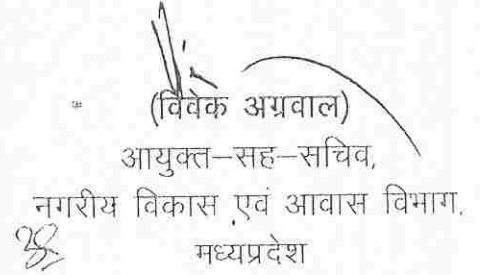 (विवेक अग्रवाल)
आयुक्त–सह–सचिव,
नगरीय विकास एवं आवास विभाग,
मध्यप्रदेश